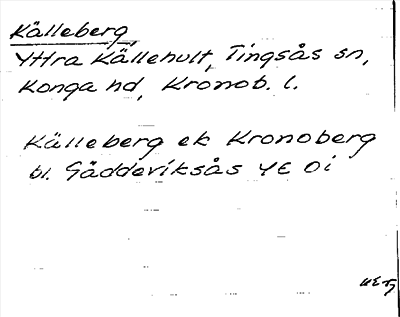 Källeberg,
Yttra Källehult, Tingsås sn,
Konga hd, Kronob. l.
Källeberg ek Kronoberg
bl. Gäddeviksås YE Oi